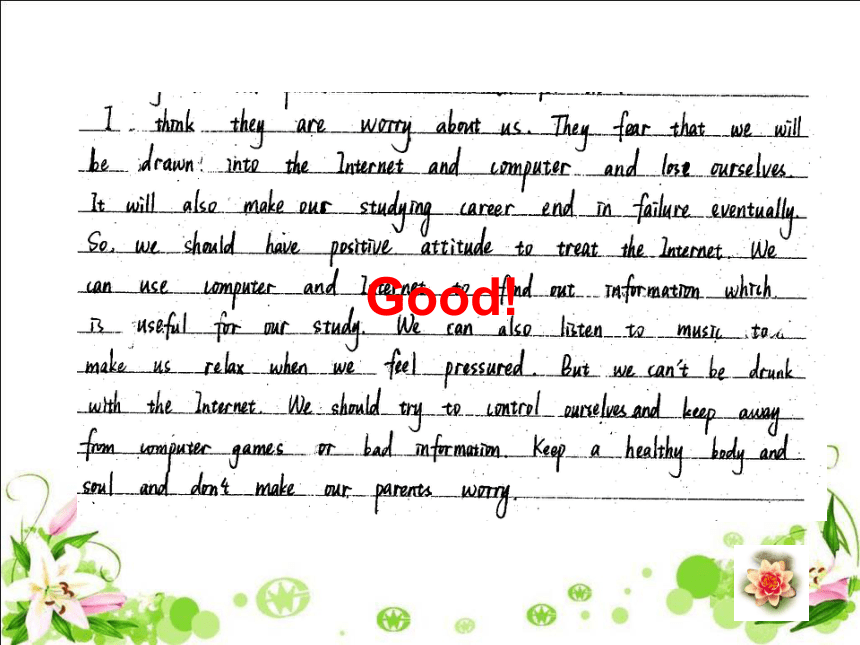 I think they are worry about us. They fear that we will
be drawn into the Internet and computer and lose ourselves.
It will also make our studying career end in failure eventually.
So, we should have positive attitude to treat the Internet. We
can use computer and Internet to find out information which
is useful for our study. We can also listen to music to
make us relax when we feel pressured. But we can't be drunk
with the Internet. We should try to control ourselves and keep away
from computer games or bad information. Keep a healthy body and
soul and don't make our parents worry.
Good!